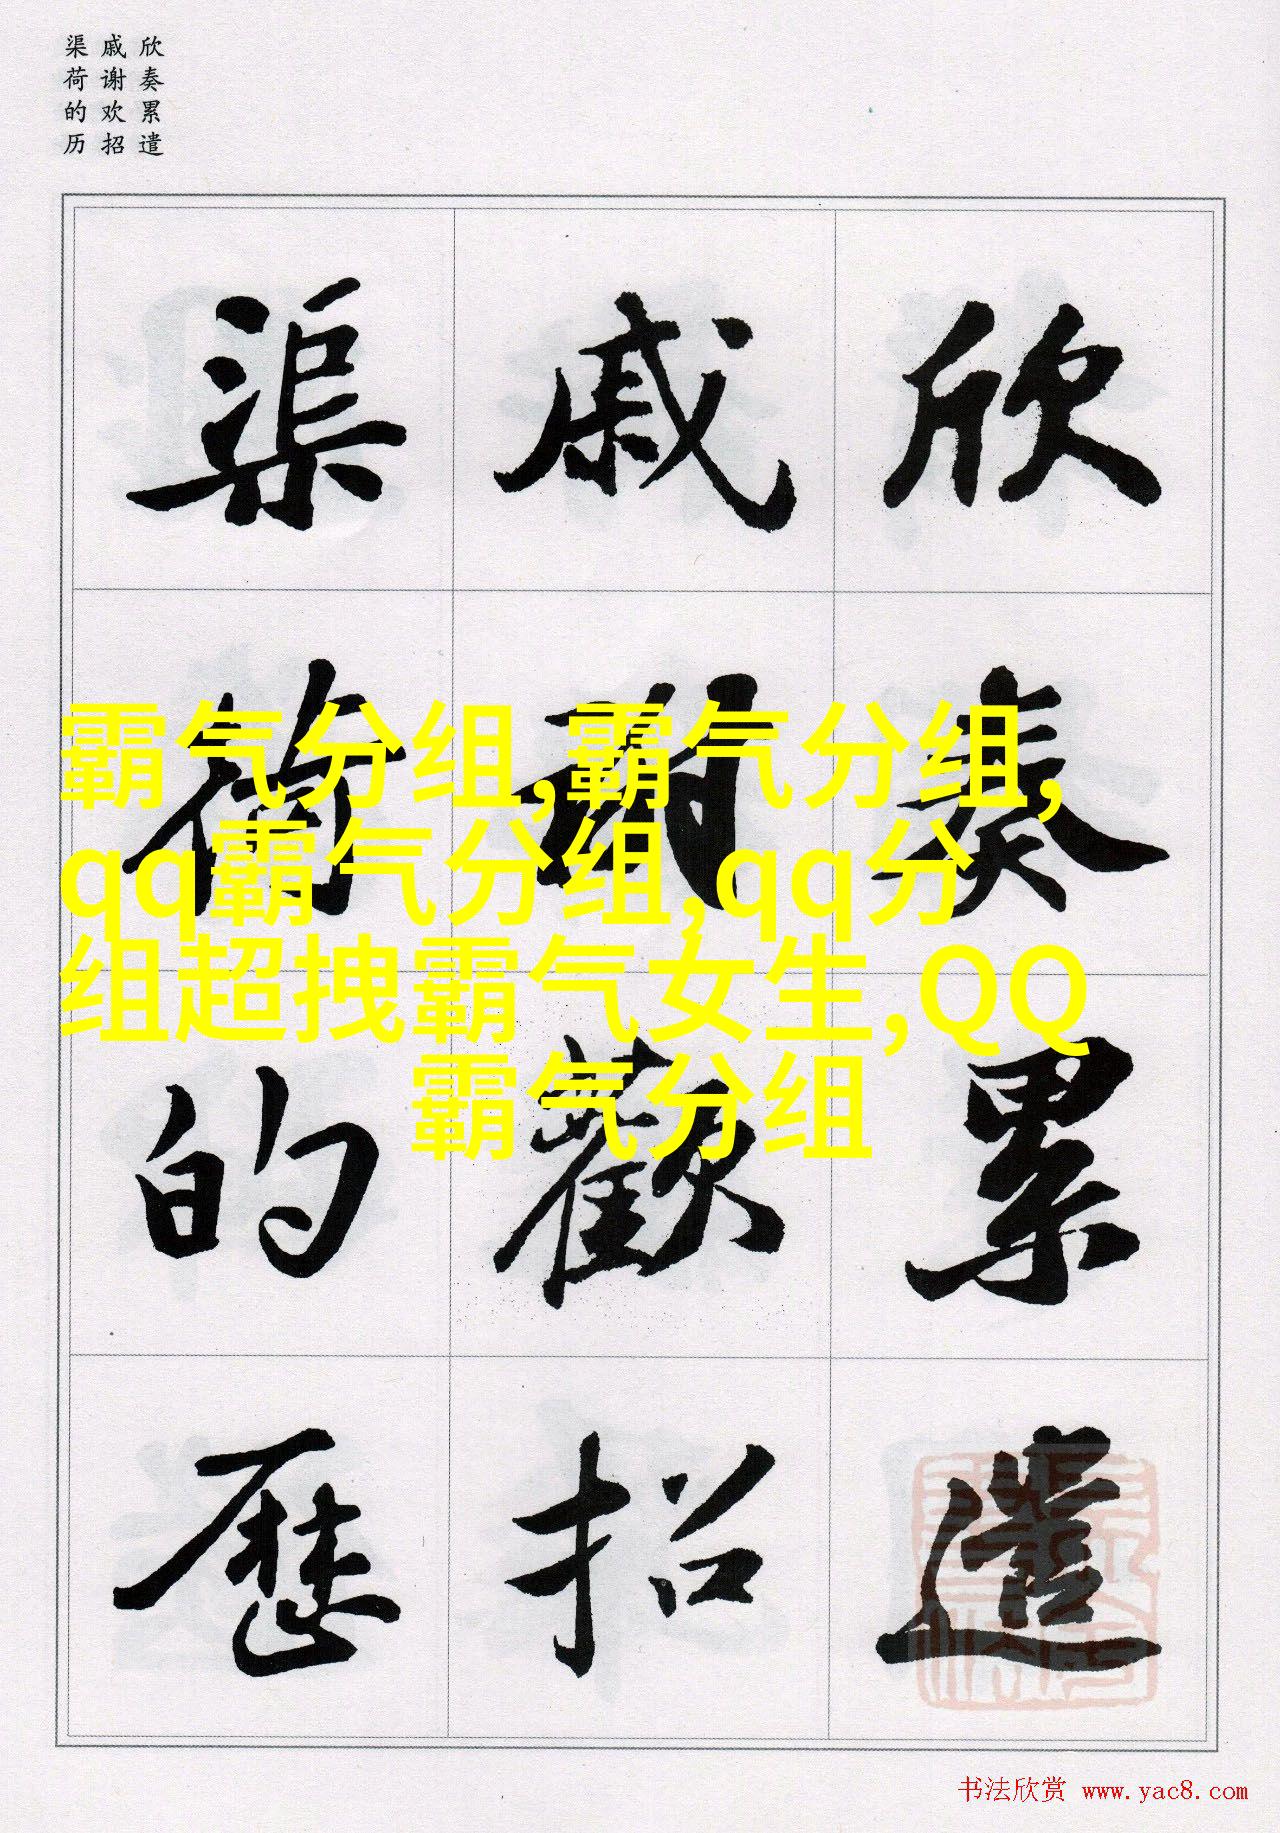 欣奏累遣
戚谢欢招
渠荷的历
欣奏累遣
戚謝歡招
渠荷的歷
霸气分组,霸气分组,
qq霸气分组,qq分
组超拽霸气女生,QQ
霸气分组
书法欣赏 www.yac8.com